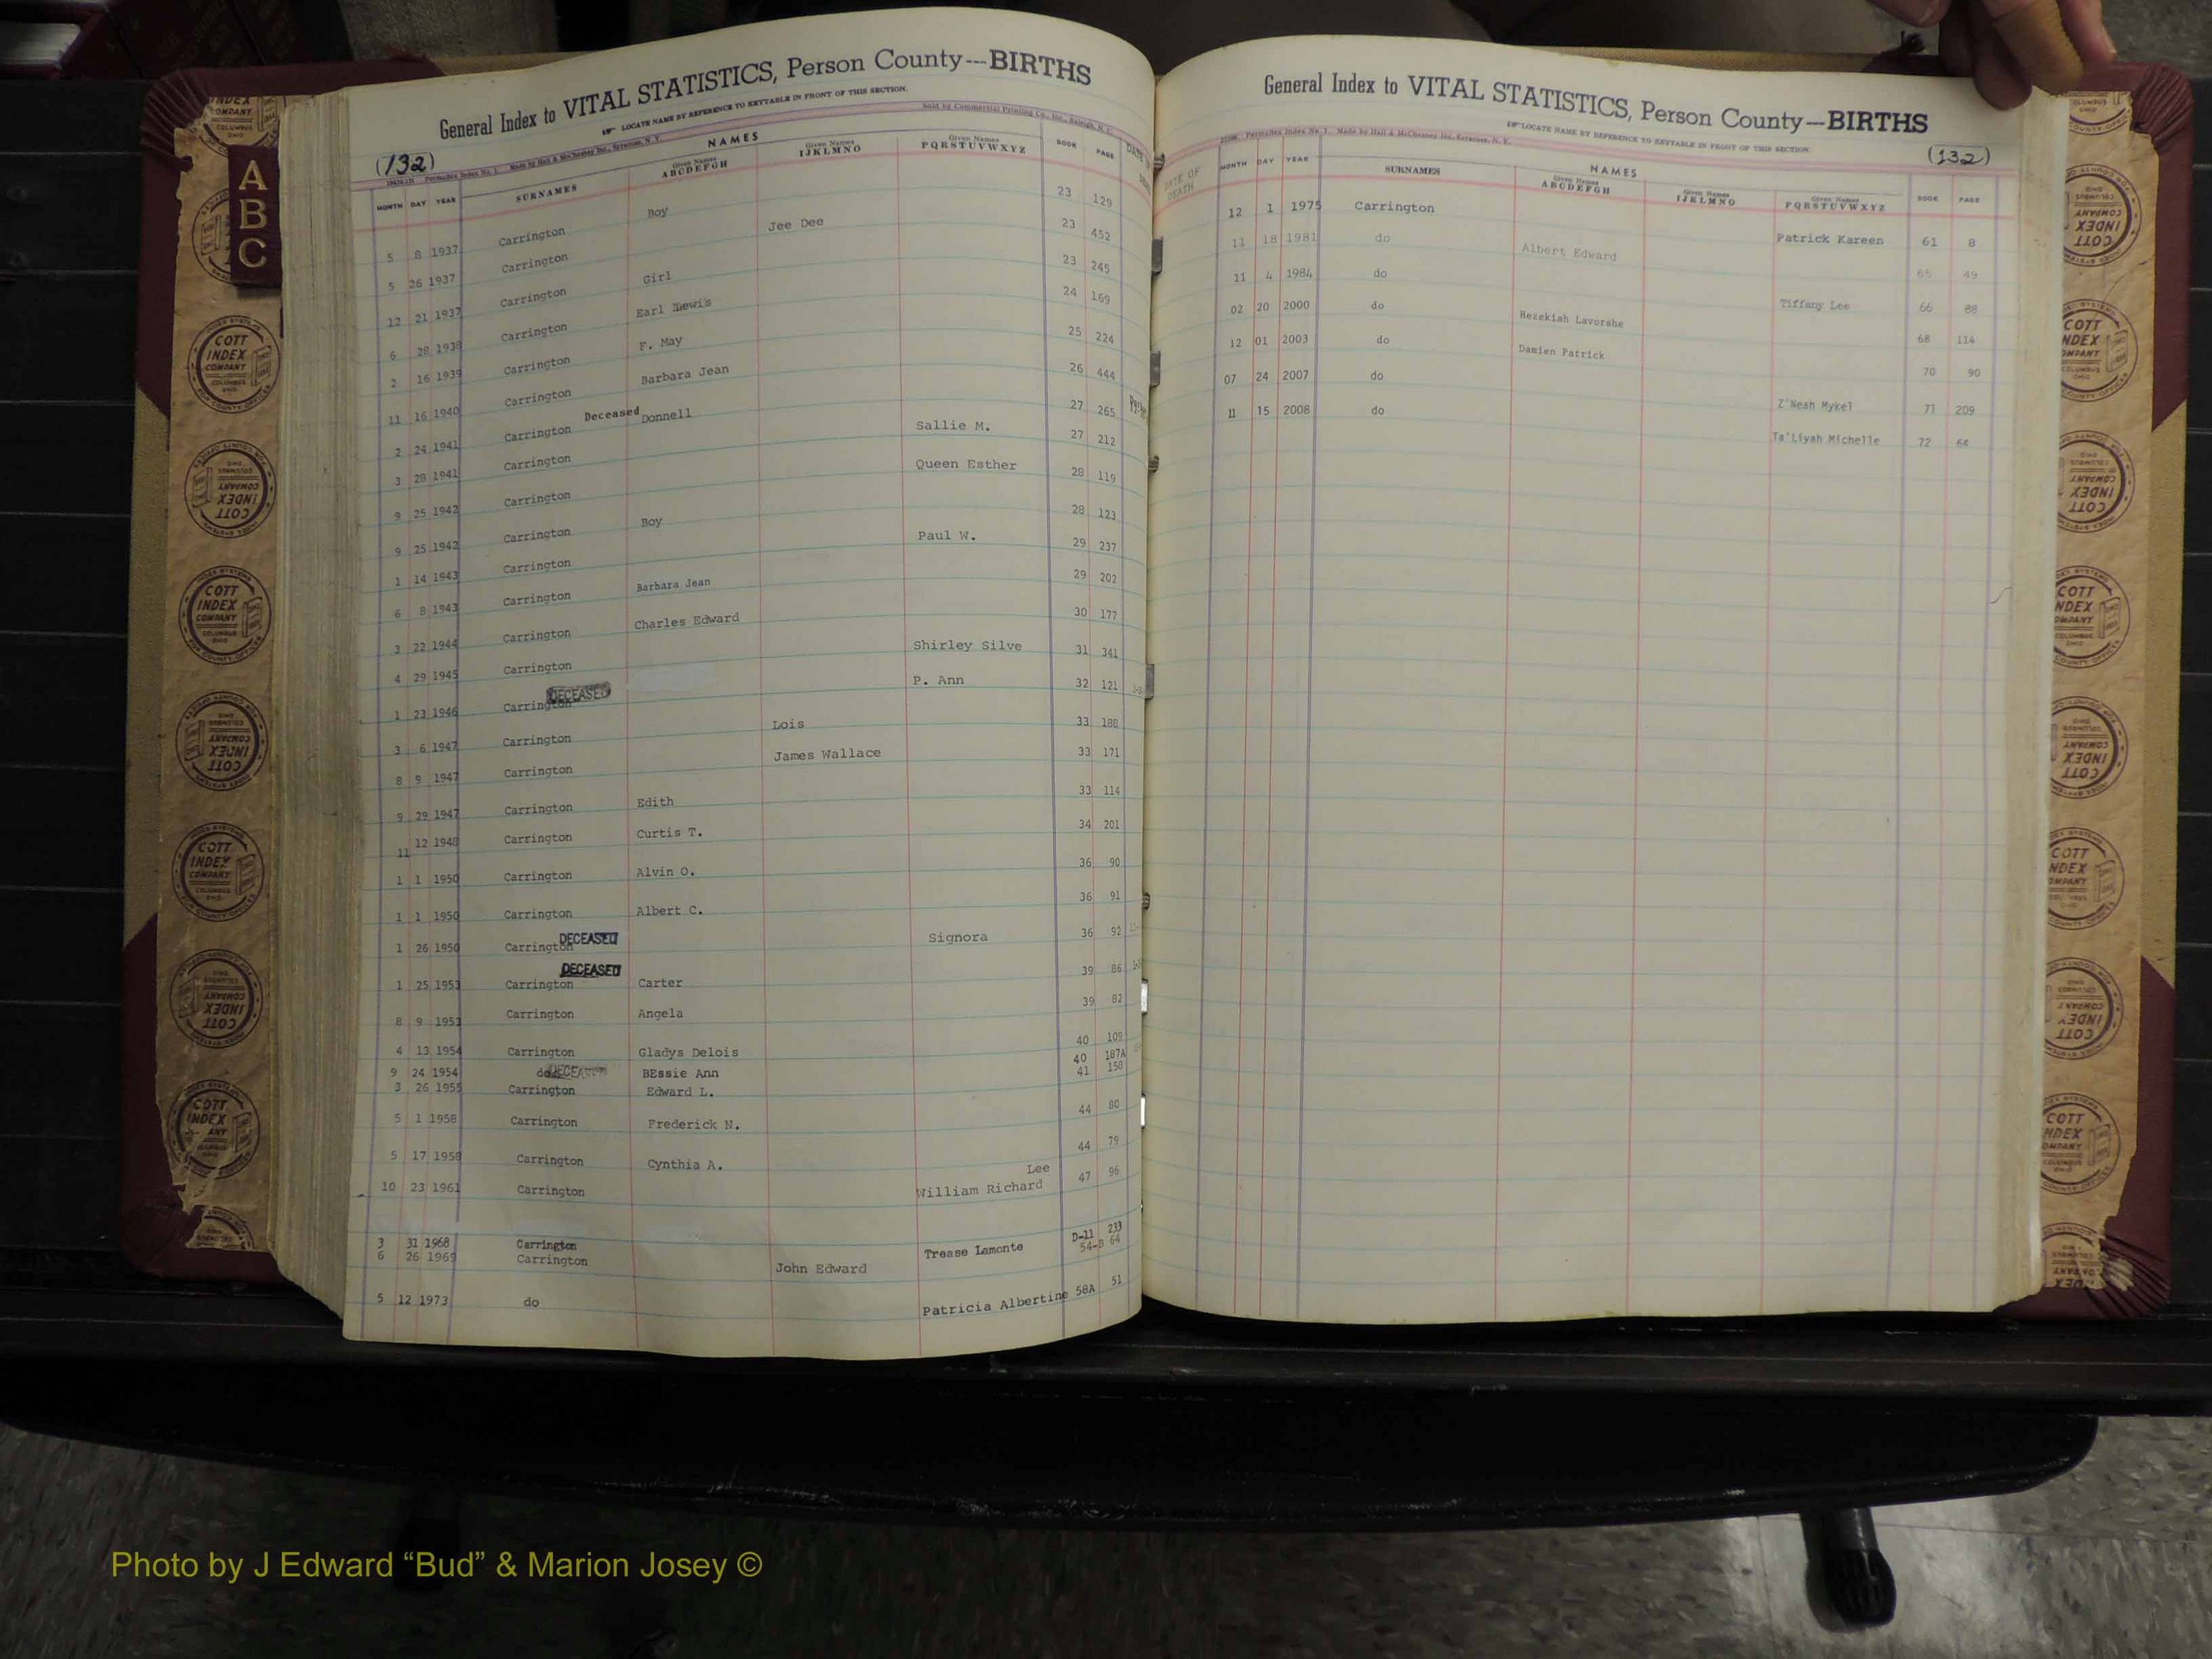 General Index to VITAL STATISTICS, Person County---BIRTHS
LOCATE NAME BY REFERENCE TO KEYTABLE IN FRONT OF THIS SECTION.
Sold by Commercial Printing Co., Inc., Raleigh, N. C.
(132)
Permadex Index No. 1. Made by Hall & McChesney Inc., Syracuse, N. Y.
NAMES
MONTH DAY YEAR SURNAMES Given Names ABCDEFGH Given Names IJKLMNO Given Names PQRSTUVWXYZ BOOK PAGE
5 8 1937 Carrington Boy 23 129
5 26 1937 Carrington Jee Dee 23 452
12 21 1937 Carrington Girl 23 245
6 28 1938 Carrington Earl Lewis 24 169
2 16 1939 Carrington F. May 25 224
11 16 1940 Carrington Barbara Jean 26 444
2 24 1941 Carrington Deceased Donnell 27 265
3 28 1941 Carrington Sallie M. 27 212
9 25 1942 Carrington Queen Esther 28 119
9 25 1942 Carrington Boy 28 123
1 14 1943 Carrington Paul W. 29 237
6 8 1943 Carrington Barbara Jean 29 202
3 22 1944 Carrington Charles Edward 30 177
4 29 1945 Carrington Shirley Silve 31 341
1 23 1946 Carrington DECEASED P. Ann 32 121
3 6 1947 Carrington Lois 33 188
8 9 1947 Carrington James Wallace 33 171
9 29 1947 Carrington Edith 33 114
11 12 1948 Carrington Curtis T. 34 201
1 1 1950 Carrington Alvin O. 36 90
1 1 1950 Carrington Albert C. 36 91
1 26 1950 Carrington DECEASED Signora 36 92
1 25 1953 Carrington DECEASED Carter 39 86
8 9 1953 Carrington Angela 39 82
4 13 1954 Carrington Gladys Delois 40 109
9 24 1954 do DECEASED BEssie Ann 40 187A
3 26 1955 Carrington Edward L. 41 158
5 1 1958 Carrington Frederick N. 44 80
5 17 1958 Carrington Cynthia A. 44 79
10 23 1961 Carrington William Richard Lee 47 96
3 31 1968 Carrington Trease Lamonte D-11 233
6 26 1969 Carrington John Edward 54-B 64
5 12 1973 do Patricia Albertine 58A 51
General Index to VITAL STATISTICS, Person County---BIRTHS
LOCATE NAME BY REFERENCE TO KEYTABLE IN FRONT OF THIS SECTION.
Permadex Index No. 1. Made by Hall & McChesney Inc., Syracuse, N. Y.
(132)
NAMES
DATE OF DEATH
MONTH DAY YEAR SURNAMES Given Names ABCDEFGH Given Names IJKLMNO Given Names PQRSTUVWXYZ BOOK PAGE
12 1 1975 Carrington Patrick Kareen 61 8
11 18 1981 do Albert Edward 65 49
11 4 1984 do Tiffany Lee 66 88
02 20 2000 do Hezekiah Lavorshe 68 114
12 01 2003 do Damien Patrick 70 90
07 24 2007 do Z'Neah Mykel 71 209
11 15 2008 do Ta'Liyah Michelle 72 64
A
B
C
COTT INDEX COMPANY
COLUMBUS OHIO
INDEX SYSTEMS
FOR COUNTY OFFICES
Photo by J Edward “Bud” & Marion Josey ©